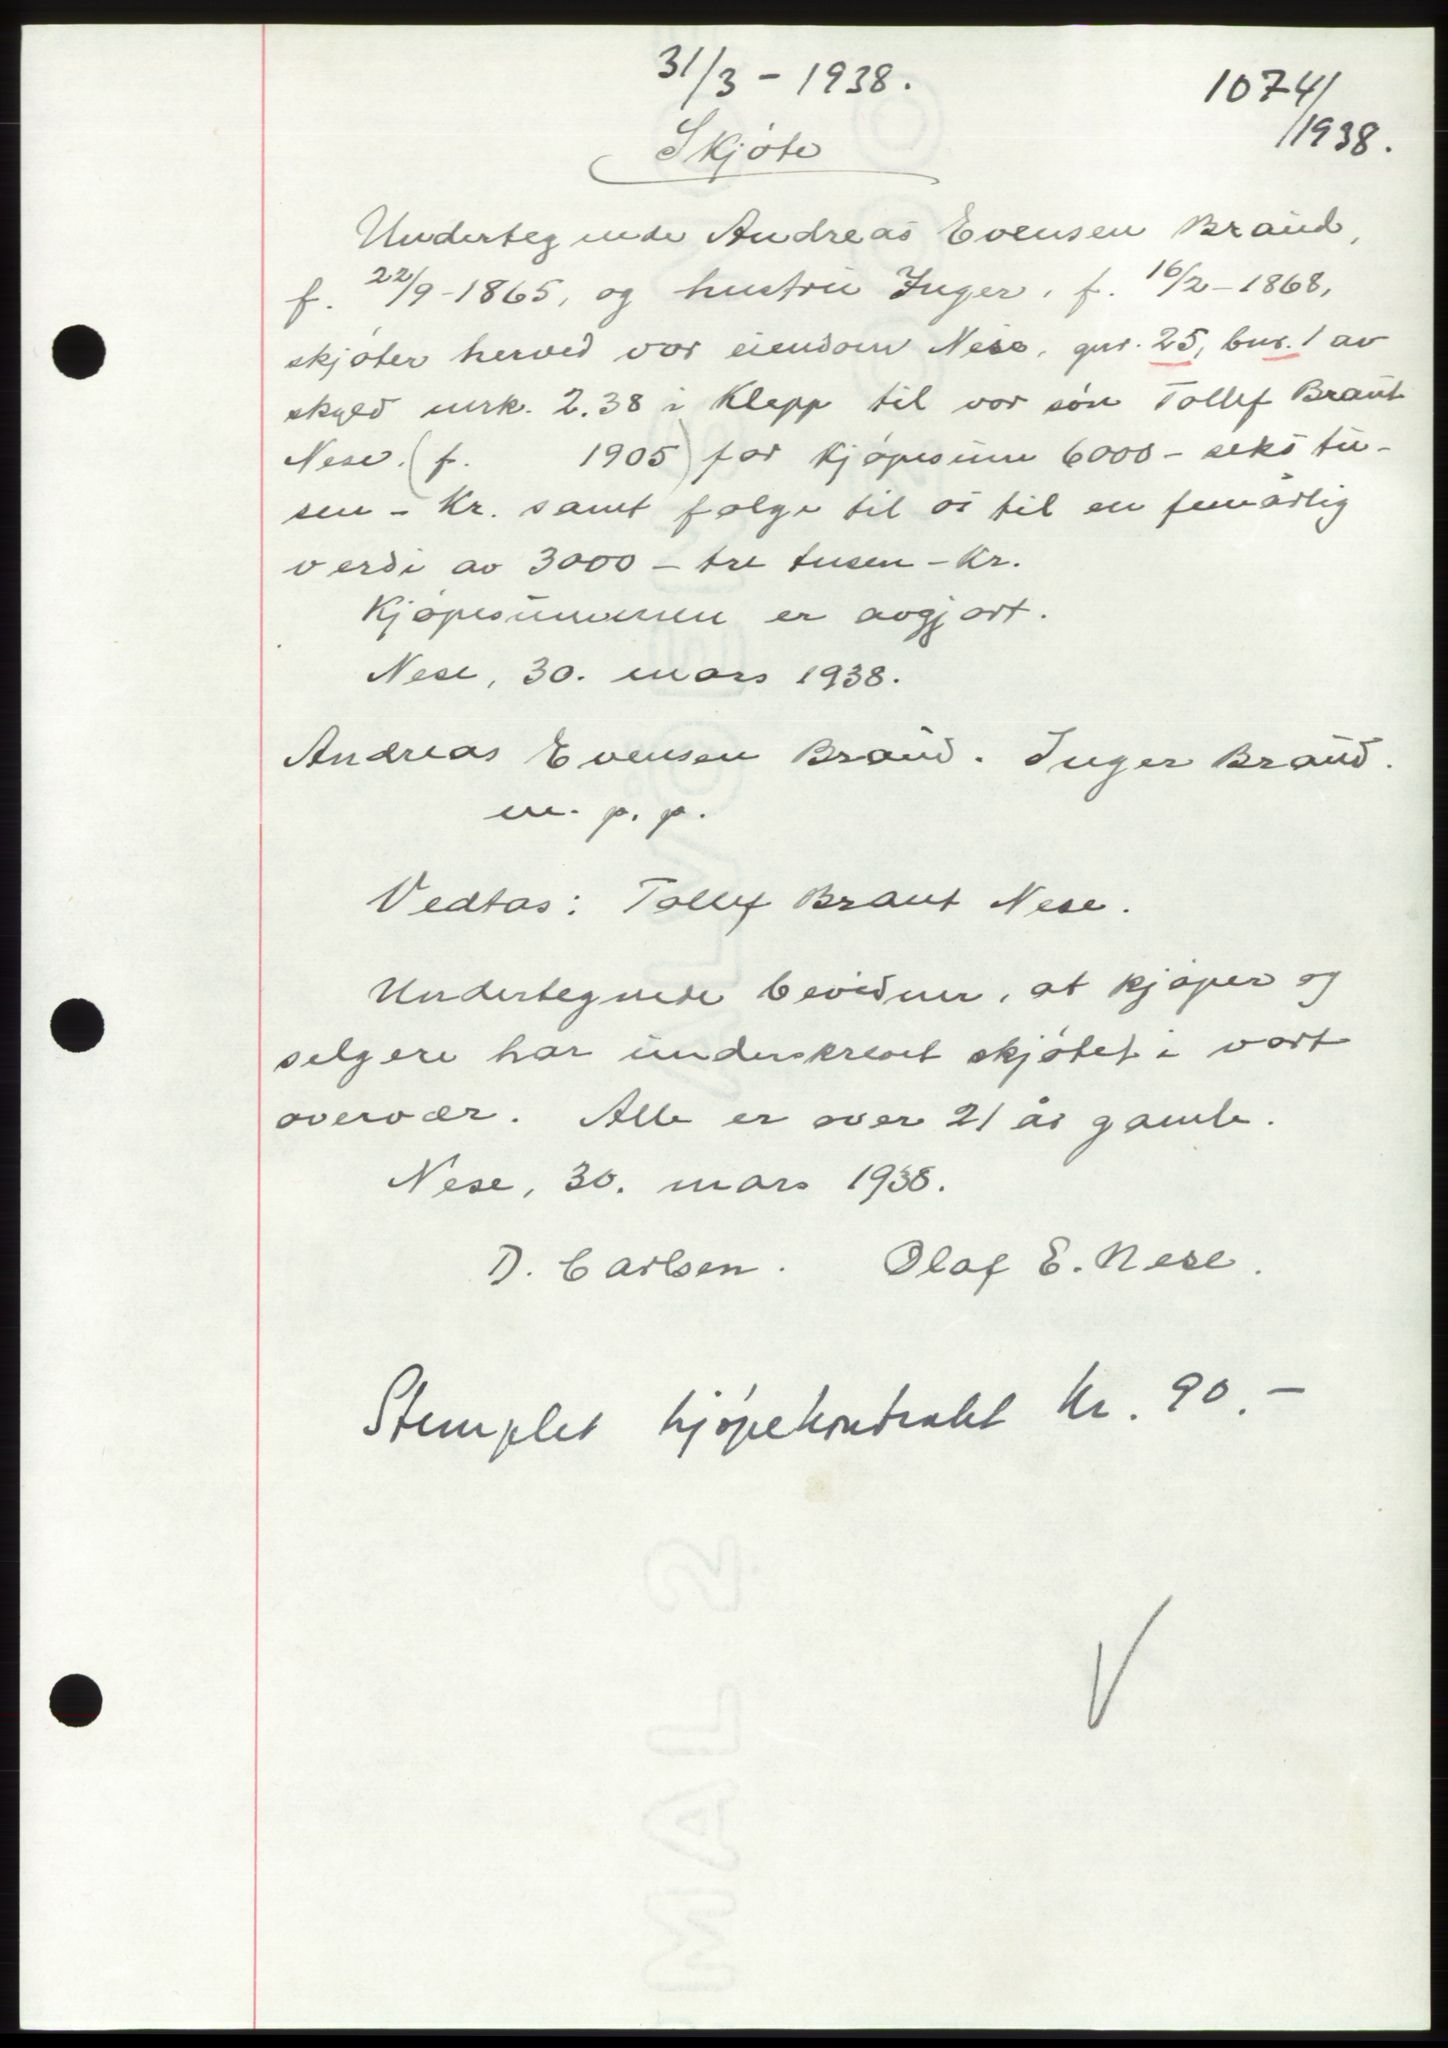 31/3 - 1938.
1074/1938.
Skjøte
Undertegnede Andreas Evensen Braud,
f. 22/9-1865, og hustru Inger, f. 16/2-1868,
skjøter herved vor eiendom Nese, gnr. 25, bnr. 1 av
skyld mrk. 2.38 i Klepp til vor søn Tollef Braut
Nese. (f. 1905) for kjøpesum 6000 - seks tu-
sen - Kr. samt følge til os til en femårlig
verdi av 3000 - tre tusen - Kr.
Kjøpesummen er avgjort.
Nese, 30. mars 1938.
Andreas Evensen Braud. Inger Braud.
m. p. p.
Vedtas: Tollef Braut Nese.
Undertegnede bevidner, at kjøper og
selgere har underskrevet skjøtet i vort
overvær. Alle er over 21 år gamle.
Nese, 30. mars 1938.
D. Carlsen. Olaf E. Nese.
Stemplet kjøpekontrakt Kr. 90.-